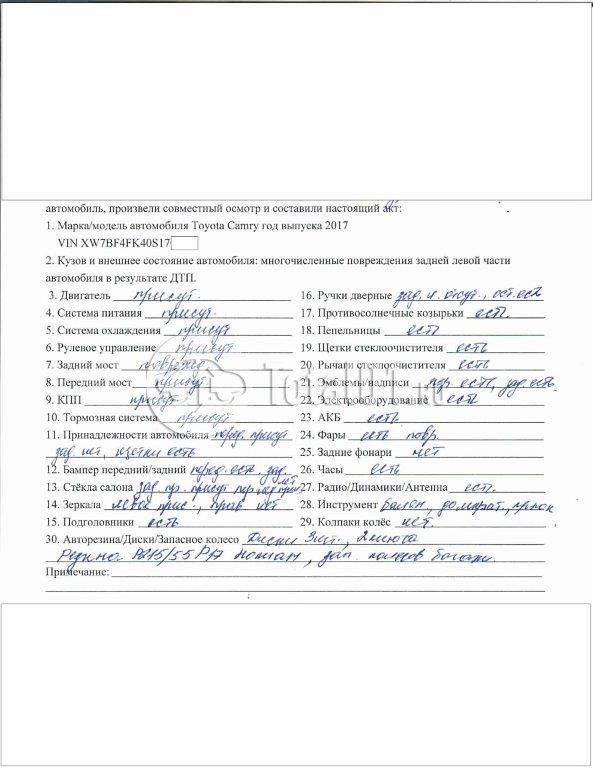 автомобиль, произвели совместный осмотр и составили настоящий акт:
1. Марка/модель автомобиля Toyota Camry год выпуска 2017
VIN XW7BF4FK40S17
2. Кузов и внешнее состояние автомобиля: многочисленные повреждения задней левой части
автомобиля в результате ДТП.
3. Двигатель присут.
4. Система питания присут.
5. Система охлаждения присут
6. Рулевое управление присут
7. Задний мост поврежд
8. Передний мост присут.
9. КПП присут
10. Тормозная система присут
11. Принадлежности автомобиля перед. присут
зад. нет, щетки есть
12. Бампер передний/задний перед. есть, зад. нет
13. Стёкла салона зад. пр. присут
14. Зеркала левое прис., прав. нет
15. Подголовники есть
16. Ручки дверные зад. л. отсут., ост. есть
17. Противосолнечные козырьки есть.
18. Пепельницы есть
19. Щетки стеклоочистителя есть
20. Рычаги стеклоочистителя есть
21. Эмблемы/надписи пер. есть, зад. есть.
22. Электрооборудование есть
23. АКБ есть
24. Фары есть повр.
25. Задние фонари нет
26. Часы есть
27. Радио/Динамики/Антенна есть.
28. Инструмент балон, домкрат, крюк
29. Колпаки колёс нет.
30. Авторезина/Диски/Запасное колесо Диски 3шт.,
Резина R17 зап. колесо в багажн.
Примечание:
Total01.ru